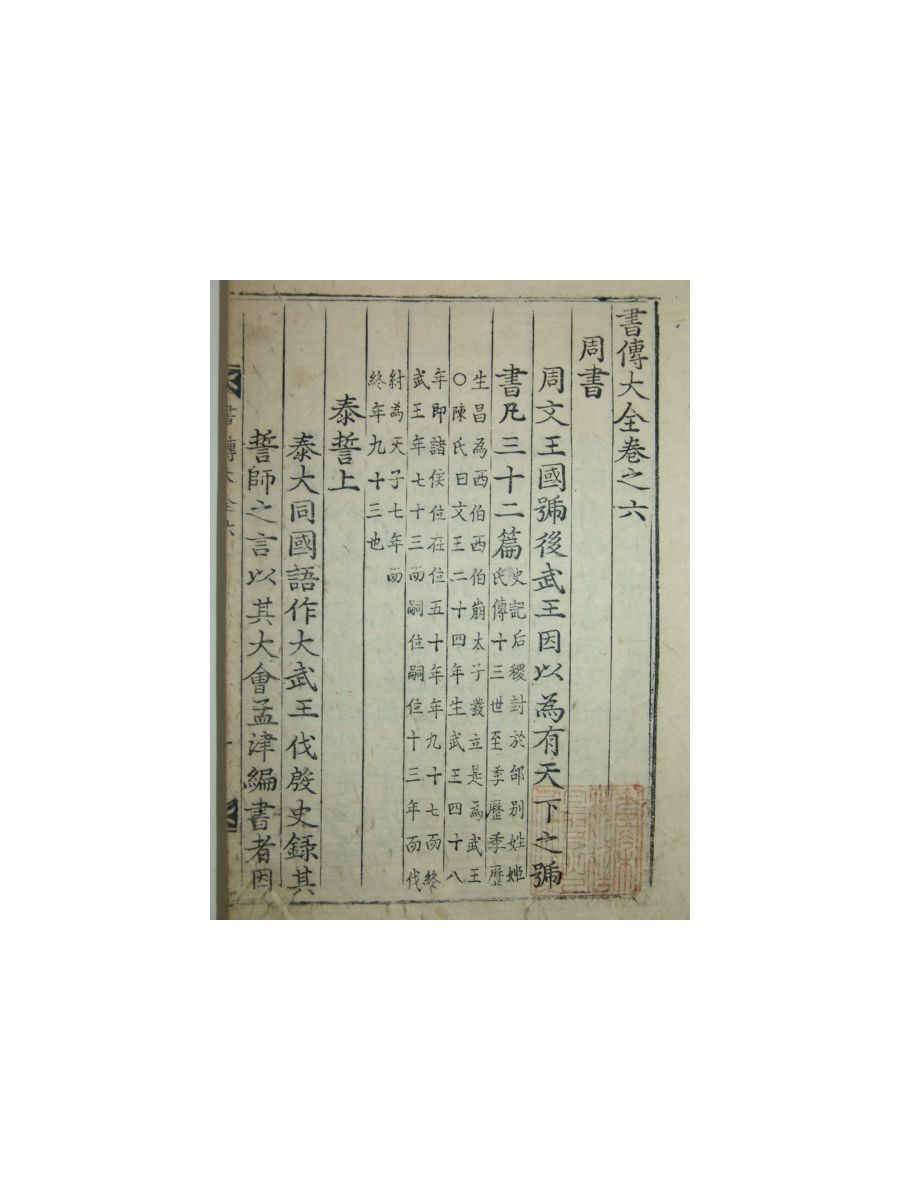 書傳大全卷之六
周書
周文王國號後武王因以為有天下之號
書凡三十二篇
史記后稷封於邰別姓姬
氏傳十三世至季歷季歷
生昌為西伯西伯崩太子發立是為武王
○陳氏曰文王二十四年生武王四十八
年即諸侯位在位五十年年九十七而終
武王年七十三而嗣位嗣位十三年而伐
紂為天子七年而
終年九十三也
泰誓上
泰大同國語作大武王伐殷史録其
誓師之言以其大會孟津編書者因
書傳大全六